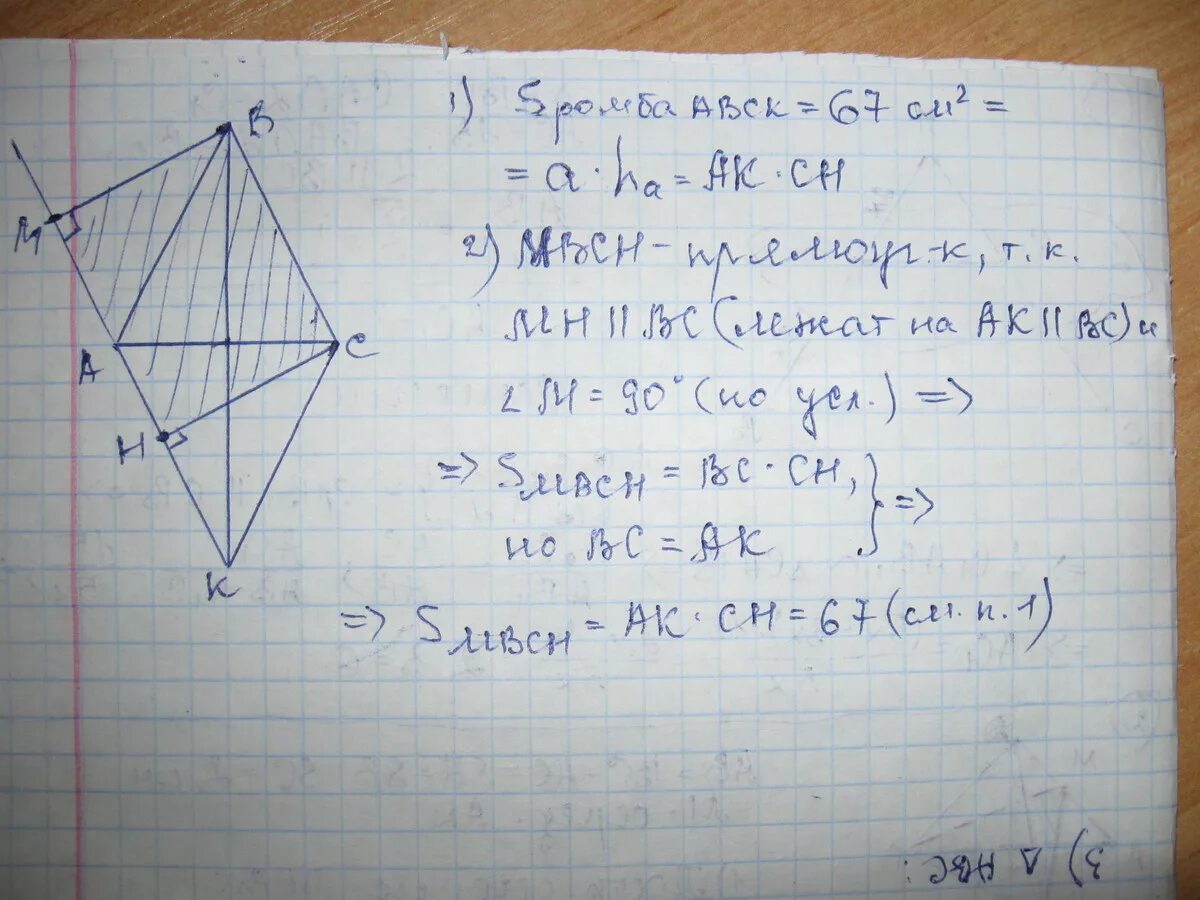 B
M
A
C
H
K
1) Sромба ABCK = 67 см² =
= a · hₐ = AK · CH
2) MBCH – прямоуг-к, т. к.
MH || BC (лежат на AK || BC) и
∠M = 90° (по усл.) =>
=> S MBCH = BC · CH, } =>
но BC = AK
=> S MBCH = AK · CH = 67 (см. п. 1)
3) Δ ABC: